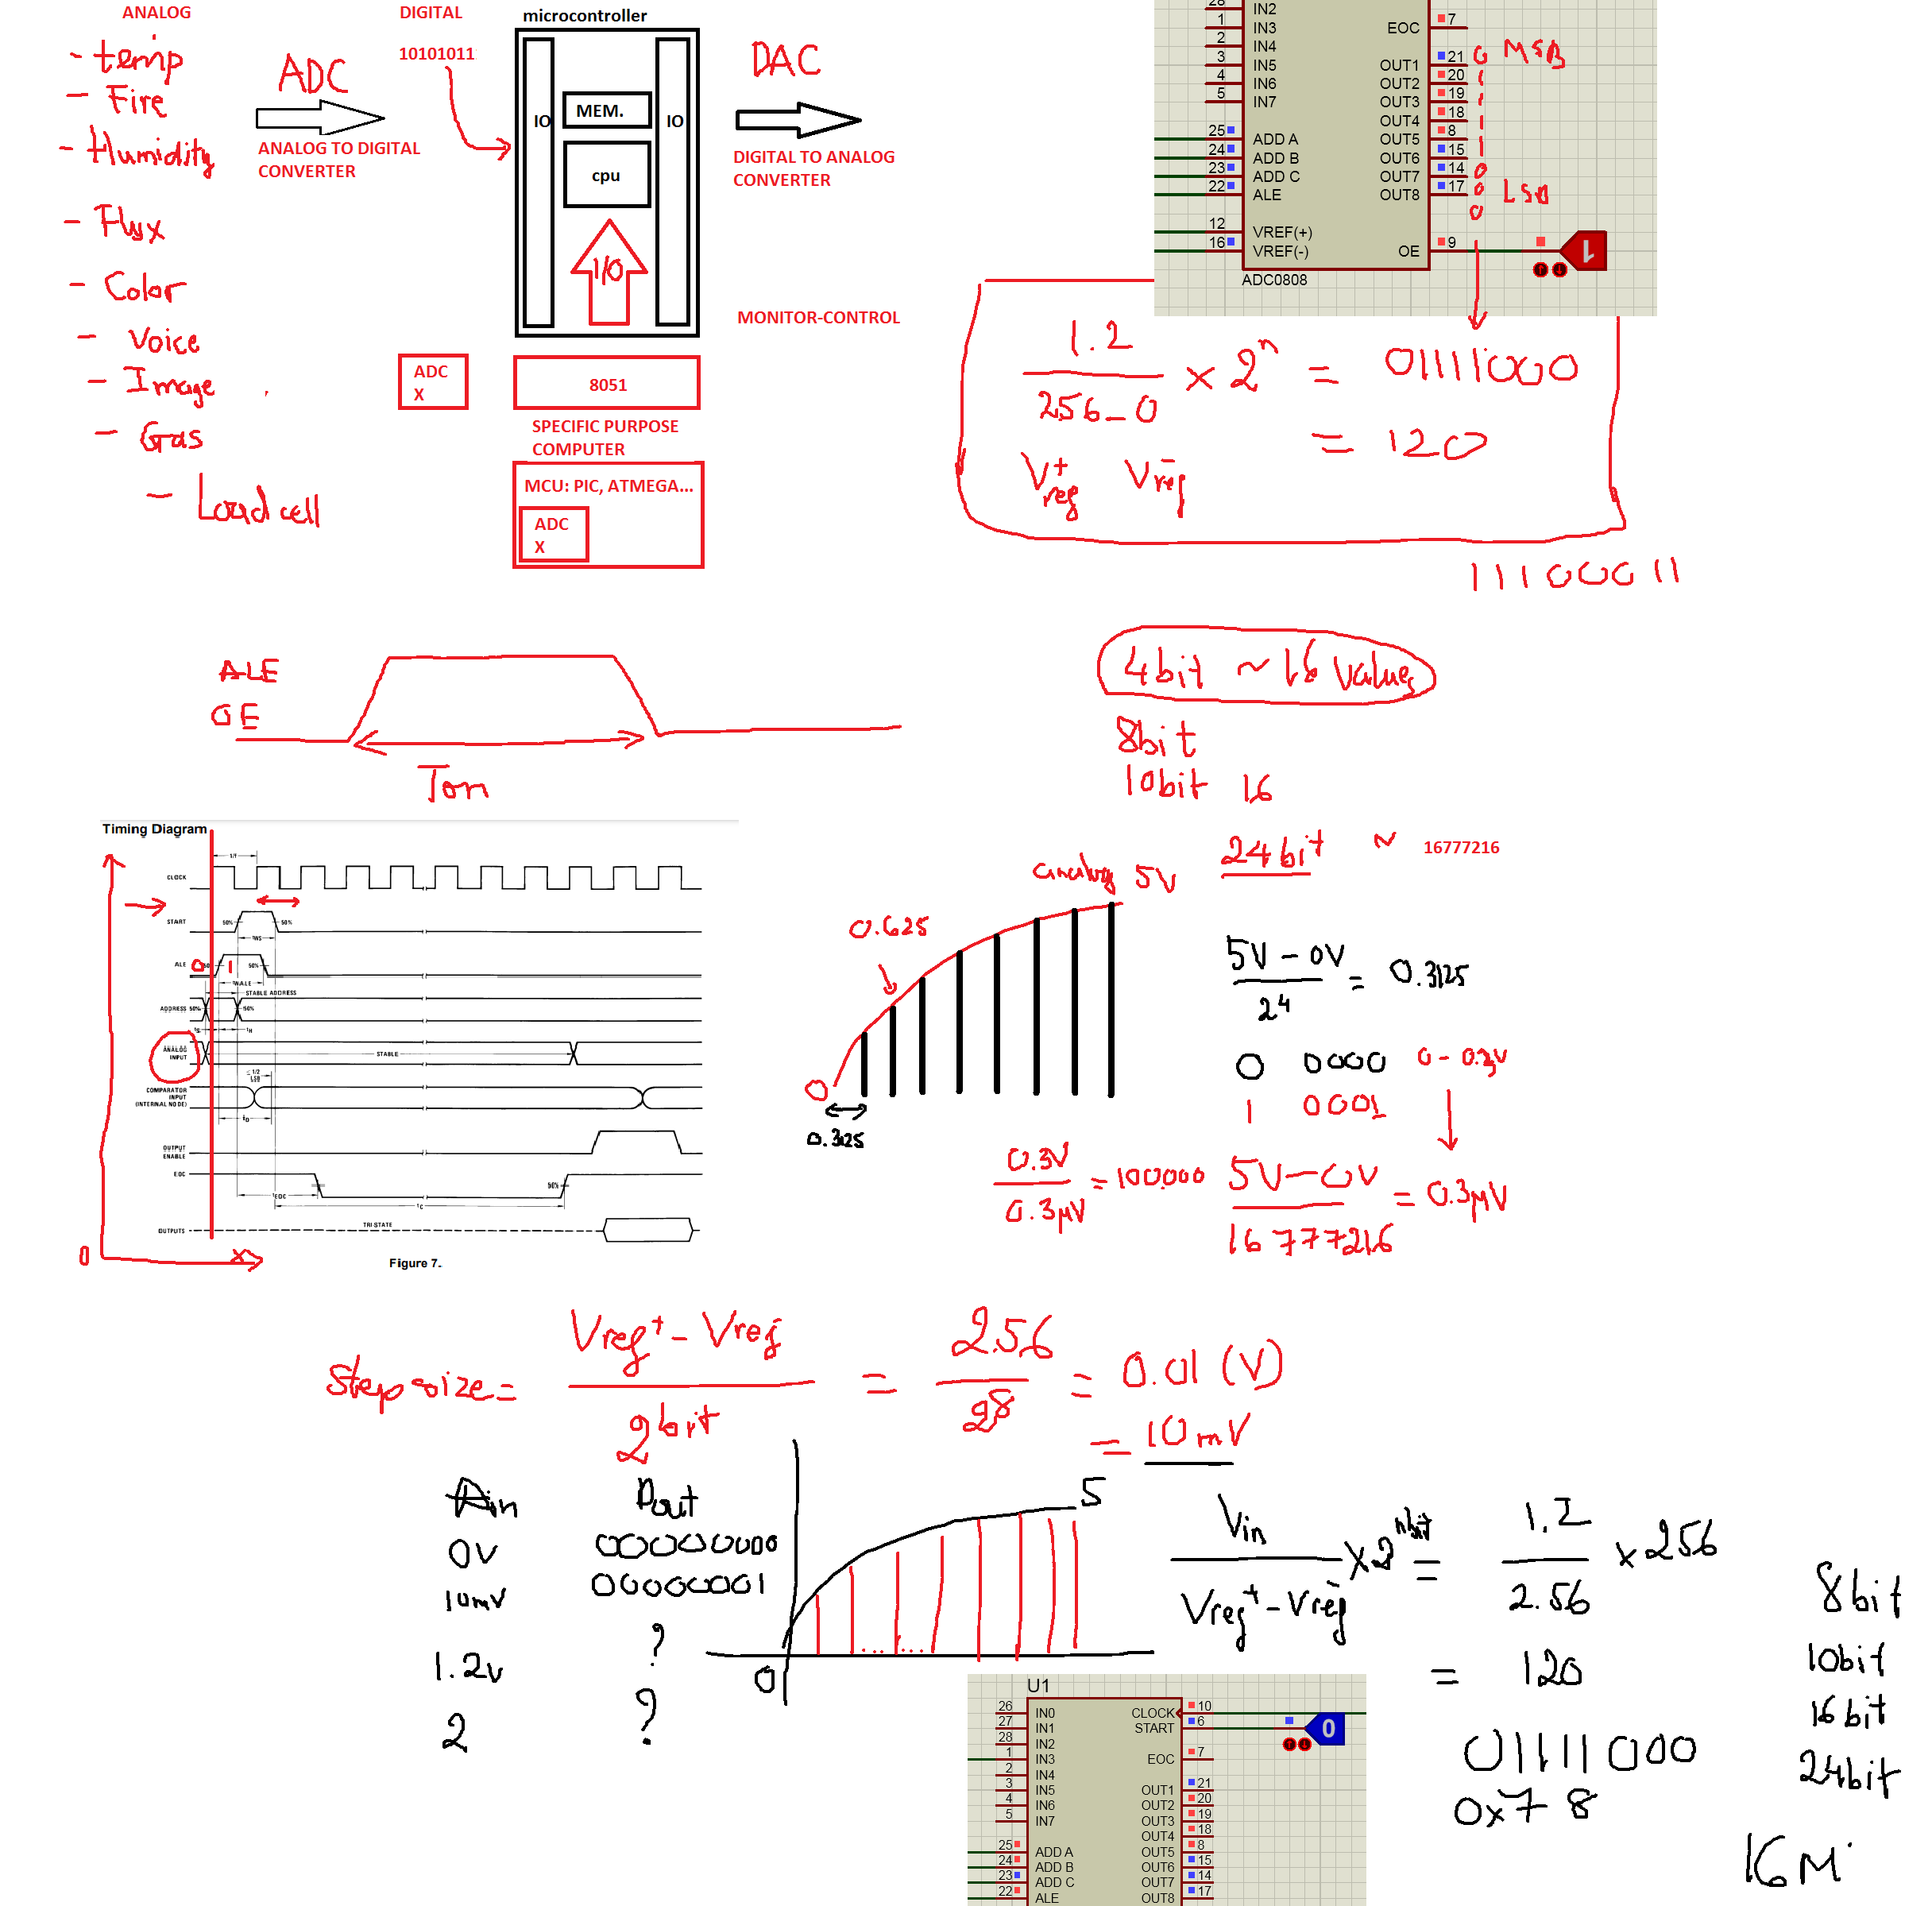 ANALOG
- temp
- Fire
- Humidity
- Flux
- Color
- Voice
- Image
- Gas
- Load cell
ADC
ANALOG TO DIGITAL
CONVERTER
DIGITAL
10101011
microcontroller
IO
MEM.
cpu
IO
I/O
DAC
DIGITAL TO ANALOG
CONVERTER
MONITOR-CONTROL
ADC
X
8051
SPECIFIC PURPOSE
COMPUTER
MCU: PIC, ATMEGA...
ADC
X
28 IN2
1 IN3
2 IN4
3 IN5
4 IN6
5 IN7
25 ADD A
24 ADD B
23 ADD C
22 ALE
12 VREF(+)
16 VREF(-)
EOC 7
OUT1 21 0 MSB
OUT2 20 1
OUT3 19 1
OUT4 18 1
OUT5 8 1
OUT6 15 0
OUT7 14 0
OUT8 17 0 LSB
OE 9
1
ADC0808
1.2
256-0
x 2^n = 01111000
= 120
Vref+ Vref-
11100011
4bit ~ 16 Values
8bit
10bit 16
24bit ~ 16777216
ALE
OE
Ton
Timing Diagram
1/f
CLOCK
START 50% 50%
tWS
ALE 0 1 50%
tWALE
STABLE ADDRESS
ADDRESS 50% 50%
tS tH
ANALOG
INPUT
STABLE
≤ 1/2
LSB
COMPARATOR
INPUT
(INTERNAL NODE)
tD
OUTPUT
ENABLE
EOC 50%
tEOC
tC
OUTPUTS TRI-STATE
0 x
Figure 7.
analog 5V
0.625
0
0.325
5V - 0V
2^4
= 0.3125
0 0000 0 - 0.3V
1 0001
0.3V
0.3μV
= 100.000
5V - 0V
16777216
= 0.3μV
Step size = Vref+ - Vref- / 2^bit = 2.56 / 2^8 = 0.01 (V)
= 10mV
Ain Dout
0V 00000000
10mV 00000001
1.2v ?
2 ?
5
0
Vin / Vref+ - Vref- x 2^nbit = 1.2 / 2.56 x 256
= 120
01111000
0x78
8bit
10bit
16bit
24bit
16M
U1
26 IN0
27 IN1
28 IN2
1 IN3
2 IN4
3 IN5
4 IN6
5 IN7
25 ADD A
24 ADD B
23 ADD C
22 ALE
CLOCK 10
START 6
0
EOC 7
OUT1 21
OUT2 20
OUT3 19
OUT4 18
OUT5 8
OUT6 15
OUT7 14
OUT8 17